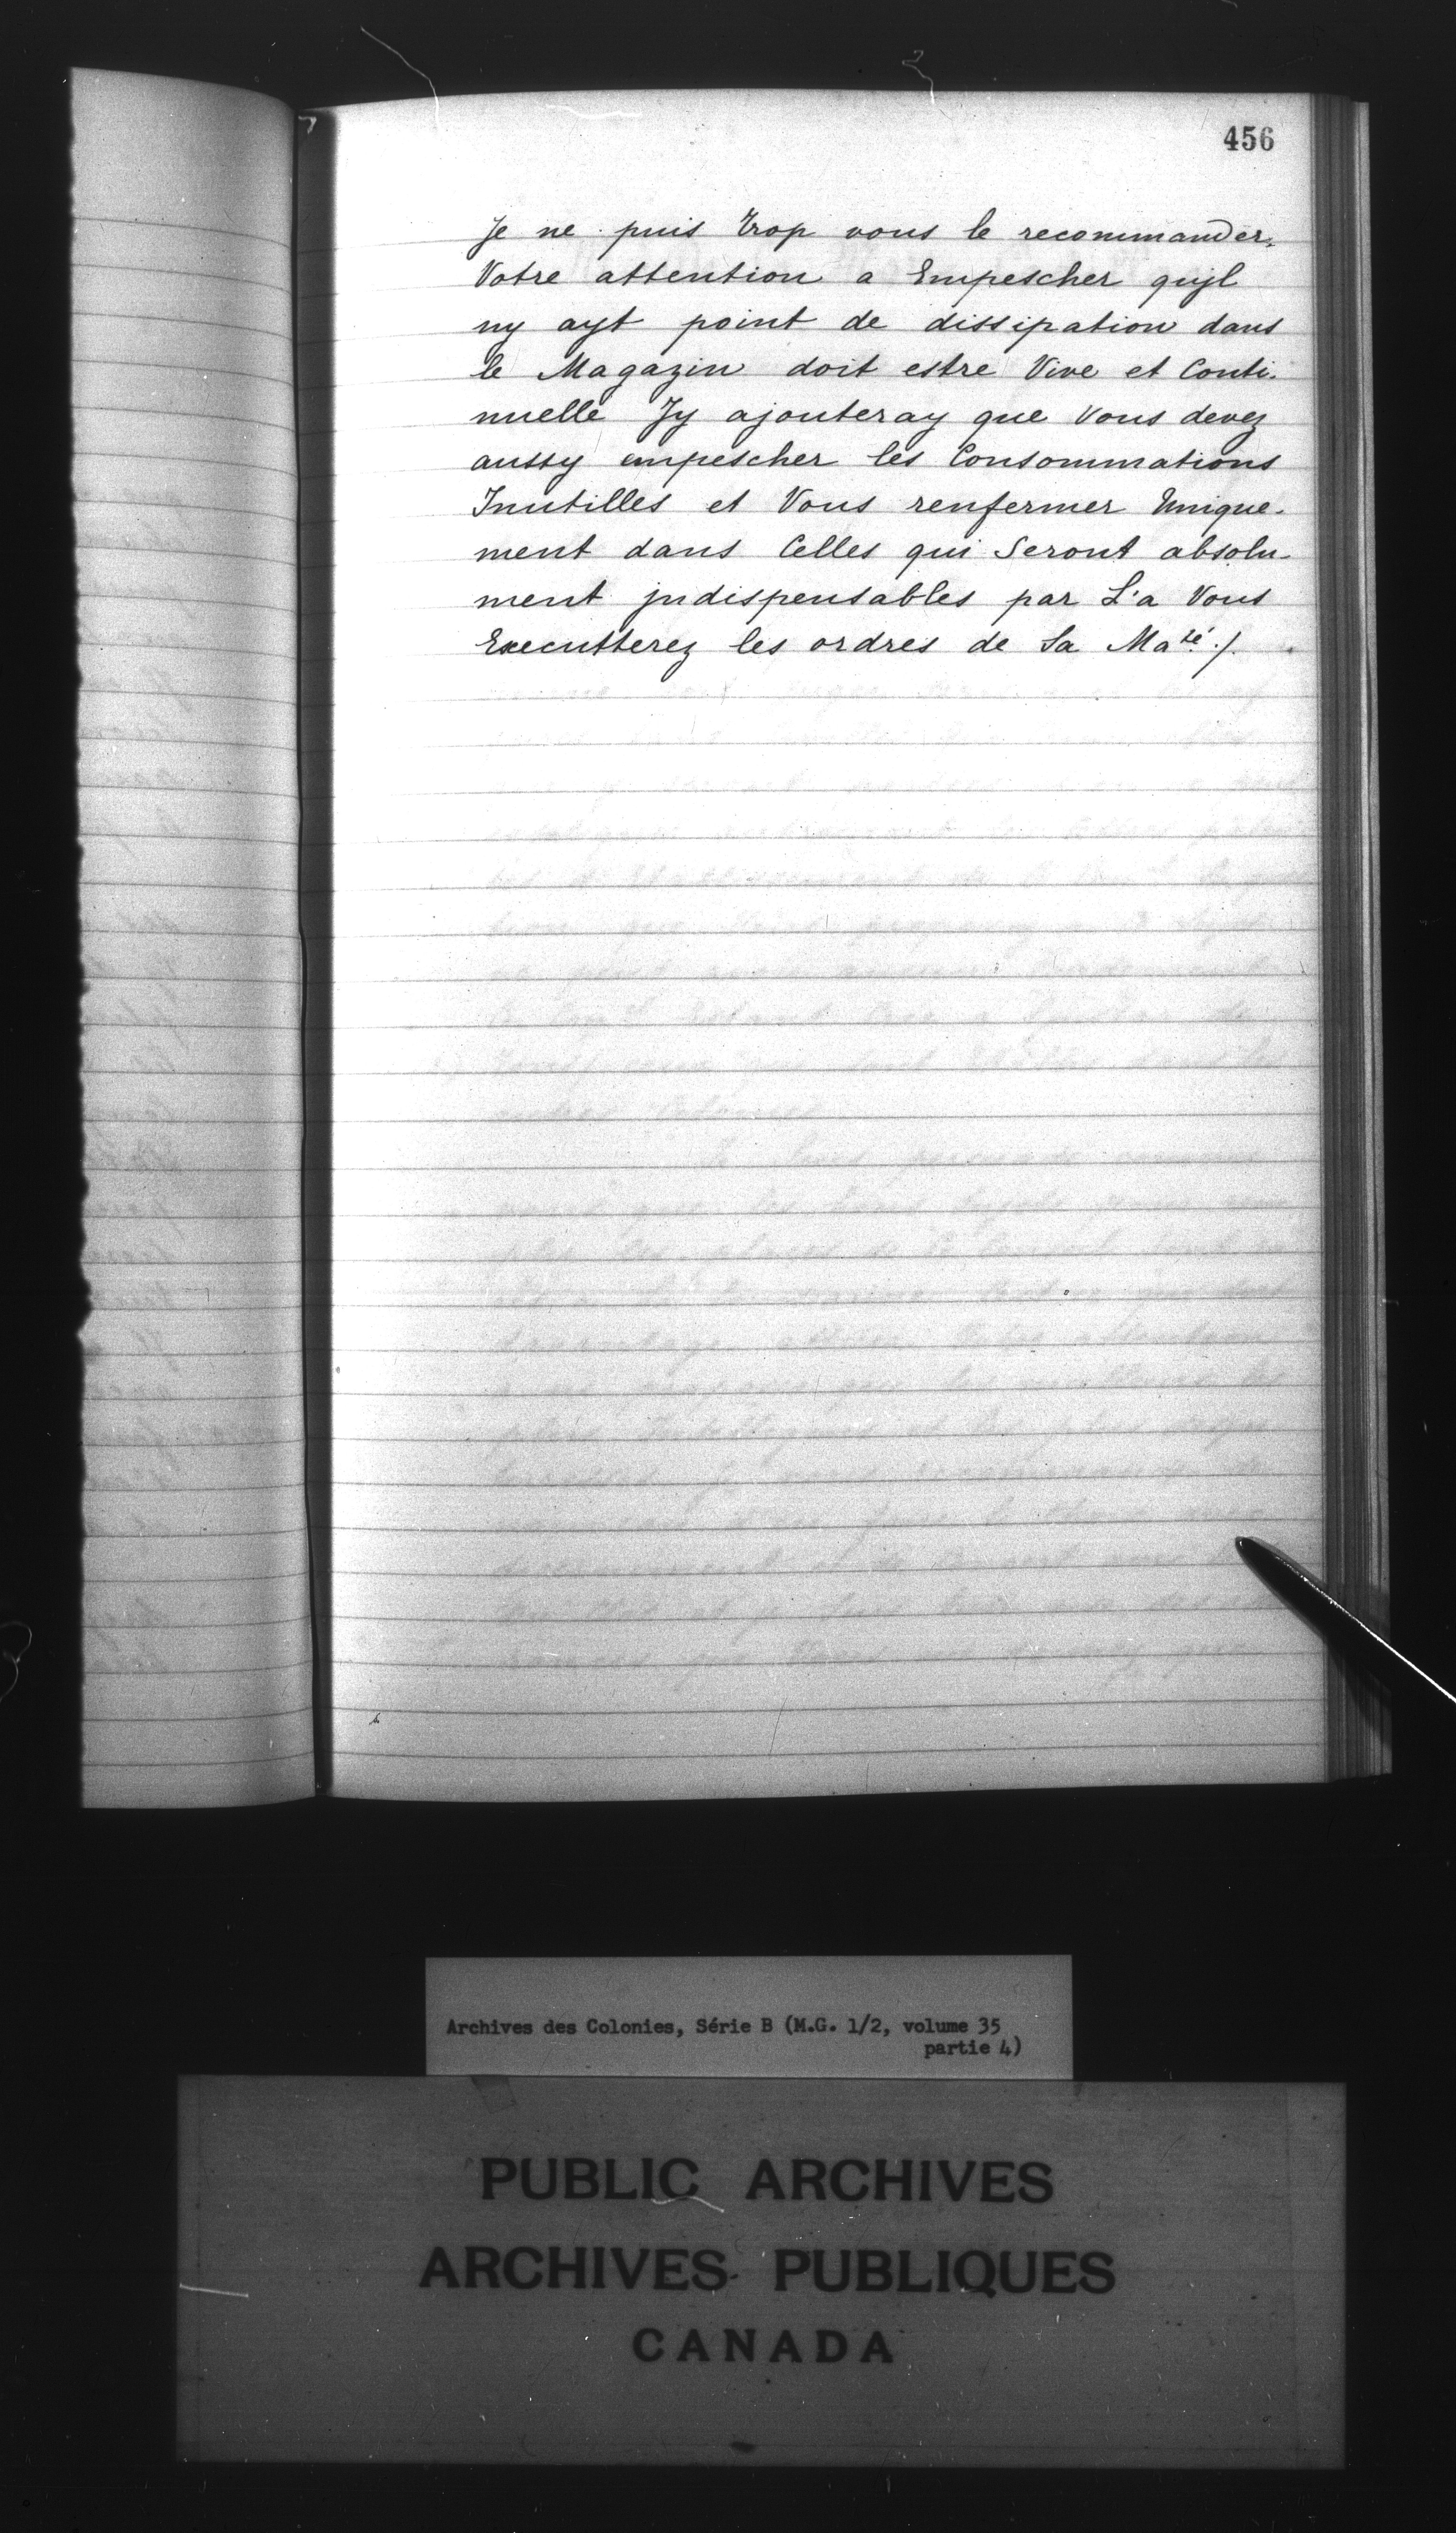 456
Je ne puis trop vous le recommander.
Votre attention a Empescher quyl
ny ayt point de dissipation dans
le Magazin doit estre Vive et Conti-
nuelle Jy ajouteray que Vous devez
aussy empescher les Consommations
Inutilles et Vous renfermer Unique-
ment dans Celles qui Seront absolu-
ment jndispensables par L'a Vous
Executterez les ordres de Sa Maté ./.
Archives des Colonies, Série B (M.G. 1/2, volume 35
partie 4)
PUBLIC ARCHIVES
ARCHIVES PUBLIQUES
CANADA